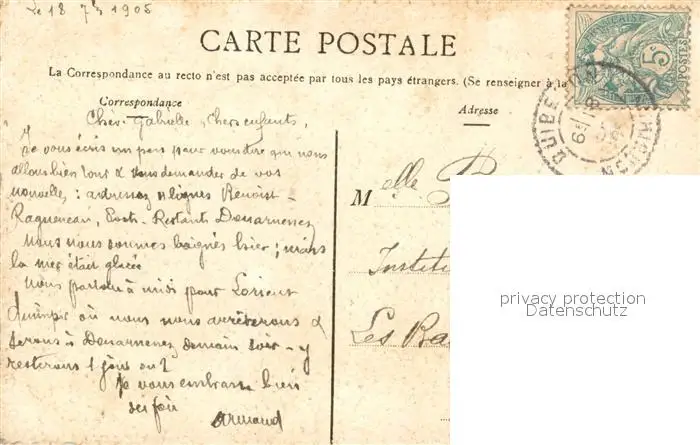 Le 18 7bre 1905
CARTE POSTALE
La Correspondance au recto n'est pas acceptée par tous les pays étrangers. (Se renseigner à la
Correspondance
Adresse
Chère Gabrielle, Chers enfants,
Je vous écris un peu pour vous dire que nous
allons bien tous & vous demander de vos
nouvelles : adressez lignes Benoist-
Ragueneau, Poste-Restante Douarnenez
Nous nous sommes baignés hier ; mais
la mer était glacée
Nous partons à midi pour Lorient
Quimper où nous nous arrêterons &
serons à Douarnenez demain soir - y
resterons 1 jour ou 2
Je vous embrasse bien
des fois
Armand
Melle
Institu
Les
FRANÇAISE
5c
POSTES
QUIBERON
MORBIHAN
privacy protection
Datenschutz